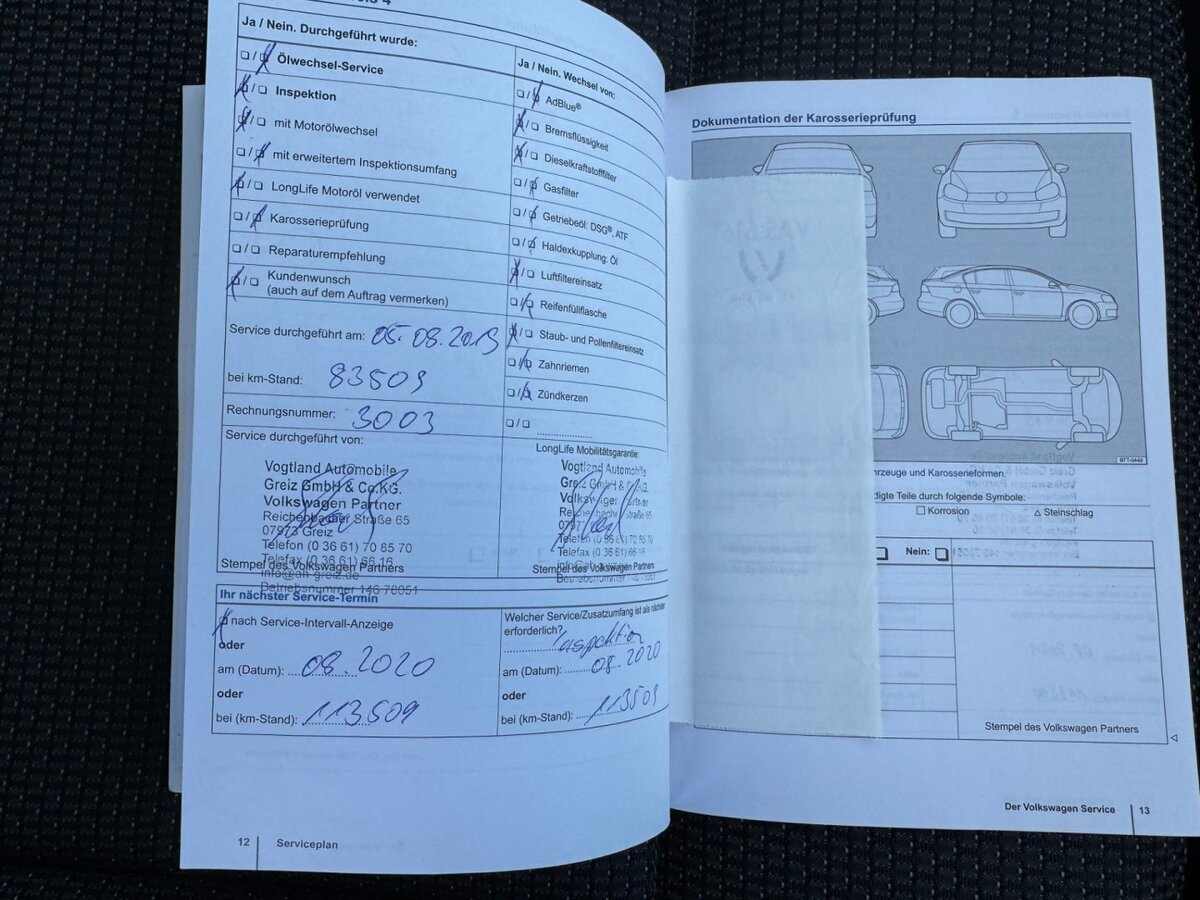 Ja / Nein. Durchgeführt wurde:
☐/☒ Ölwechsel-Service
☒/☐ Inspektion
☒/☐ mit Motorölwechsel
☐/☒ mit erweitertem Inspektionsumfang
☒/☐ LongLife Motoröl verwendet
☐/☒ Karosserieprüfung
☐/☐ Reparaturempfehlung
☒/☐ Kundenwunsch
(auch auf dem Auftrag vermerken)
Service durchgeführt am: 05.08.2019
bei km-Stand: 83509
Rechnungsnummer: 3003
Service durchgeführt von:
Vogtland Automobile
Greiz GmbH & Co.KG.
Volkswagen Partner
Reichenbacher Straße 65
07973 Greiz
Telefon (0 36 61) 70 85 70
Telefax (0 36 61) 66 16
Stempel des Volkswagen Partners
info@ah-greiz.de
Betriebsnummer 146 78051
Ja / Nein. Wechsel von:
☐/☒ AdBlue®
☒/☐ Bremsflüssigkeit
☒/☐ Dieselkraftstofffilter
☐/☒ Gasfilter
☐/☒ Getriebeöl: DSG®, ATF
☐/☒ Haldexkupplung: Öl
☒/☐ Luftfiltereinsatz
☐/☒ Reifenfüllflasche
☒/☐ Staub- und Pollenfiltereinsatz
☐/☒ Zahnriemen
☐/☒ Zündkerzen
☐/☐
LongLife Mobilitätsgarantie:
Vogtland Automobile
Greiz GmbH & Co.KG.
Volkswagen Partner
Reichenbacher Straße 65
Telefon (0 36 61) 70 85 70
Telefax (0 36 61) 66 16
Stempel des Volkswagen Partners
Betriebsnummer 146 78051
Ihr nächster Service-Termin
☒ nach Service-Intervall-Anzeige
oder
am (Datum): 08.2020
oder
bei (km-Stand): 113509
Welcher Service/Zusatzumfang ist als nächster
erforderlich?
Inspektion
am (Datum): 08.2020
oder
bei (km-Stand): 113509
12 Serviceplan
Dokumentation der Karosserieprüfung
BTT-0449
Karosserieformen.
Teile durch folgende Symbole:
☐ Korrosion △ Steinschlag
☐ Nein: ☐
Stempel des Volkswagen Partners
Der Volkswagen Service 13